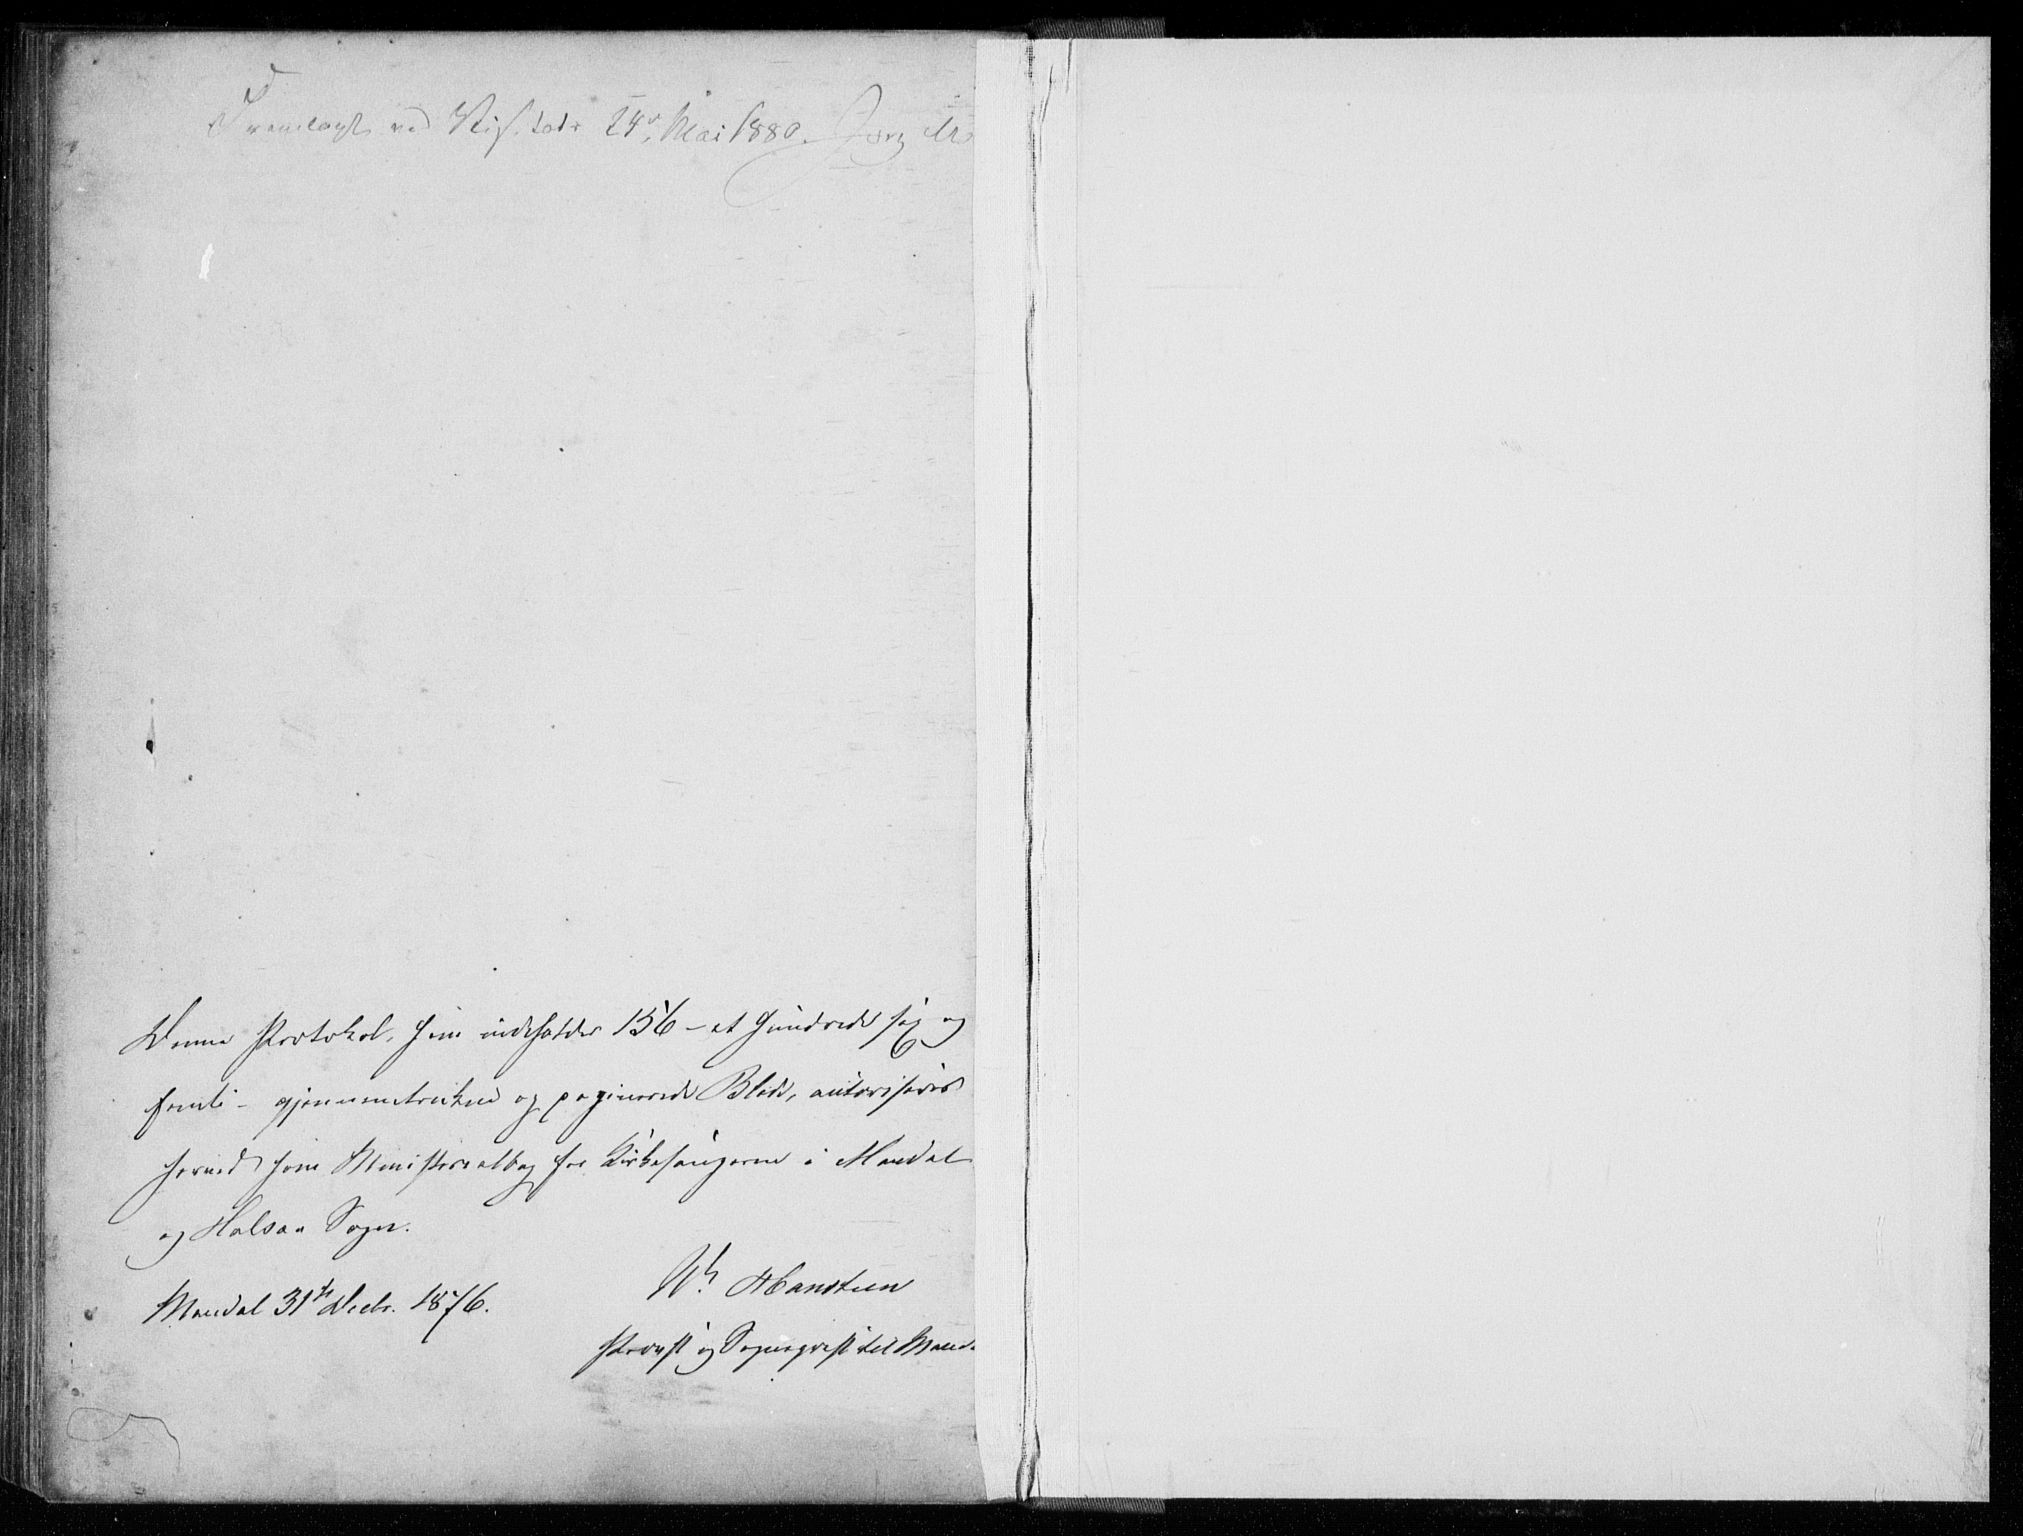 Fremlagt ved Visitats 24de Mai 1880. Jørg
Denne Protokol, som indeholder 156 – et Hundrede sex og
femti – gjennemtrukne og paginerede Blade, autoriseres
herved som Ministerialbog for Kirkesangerne i Mandal
og Halsaa Sogn.
Mandal 31te Decbr. 1876.
Wh. Hansteen
Provst og Sognepræst til Mand